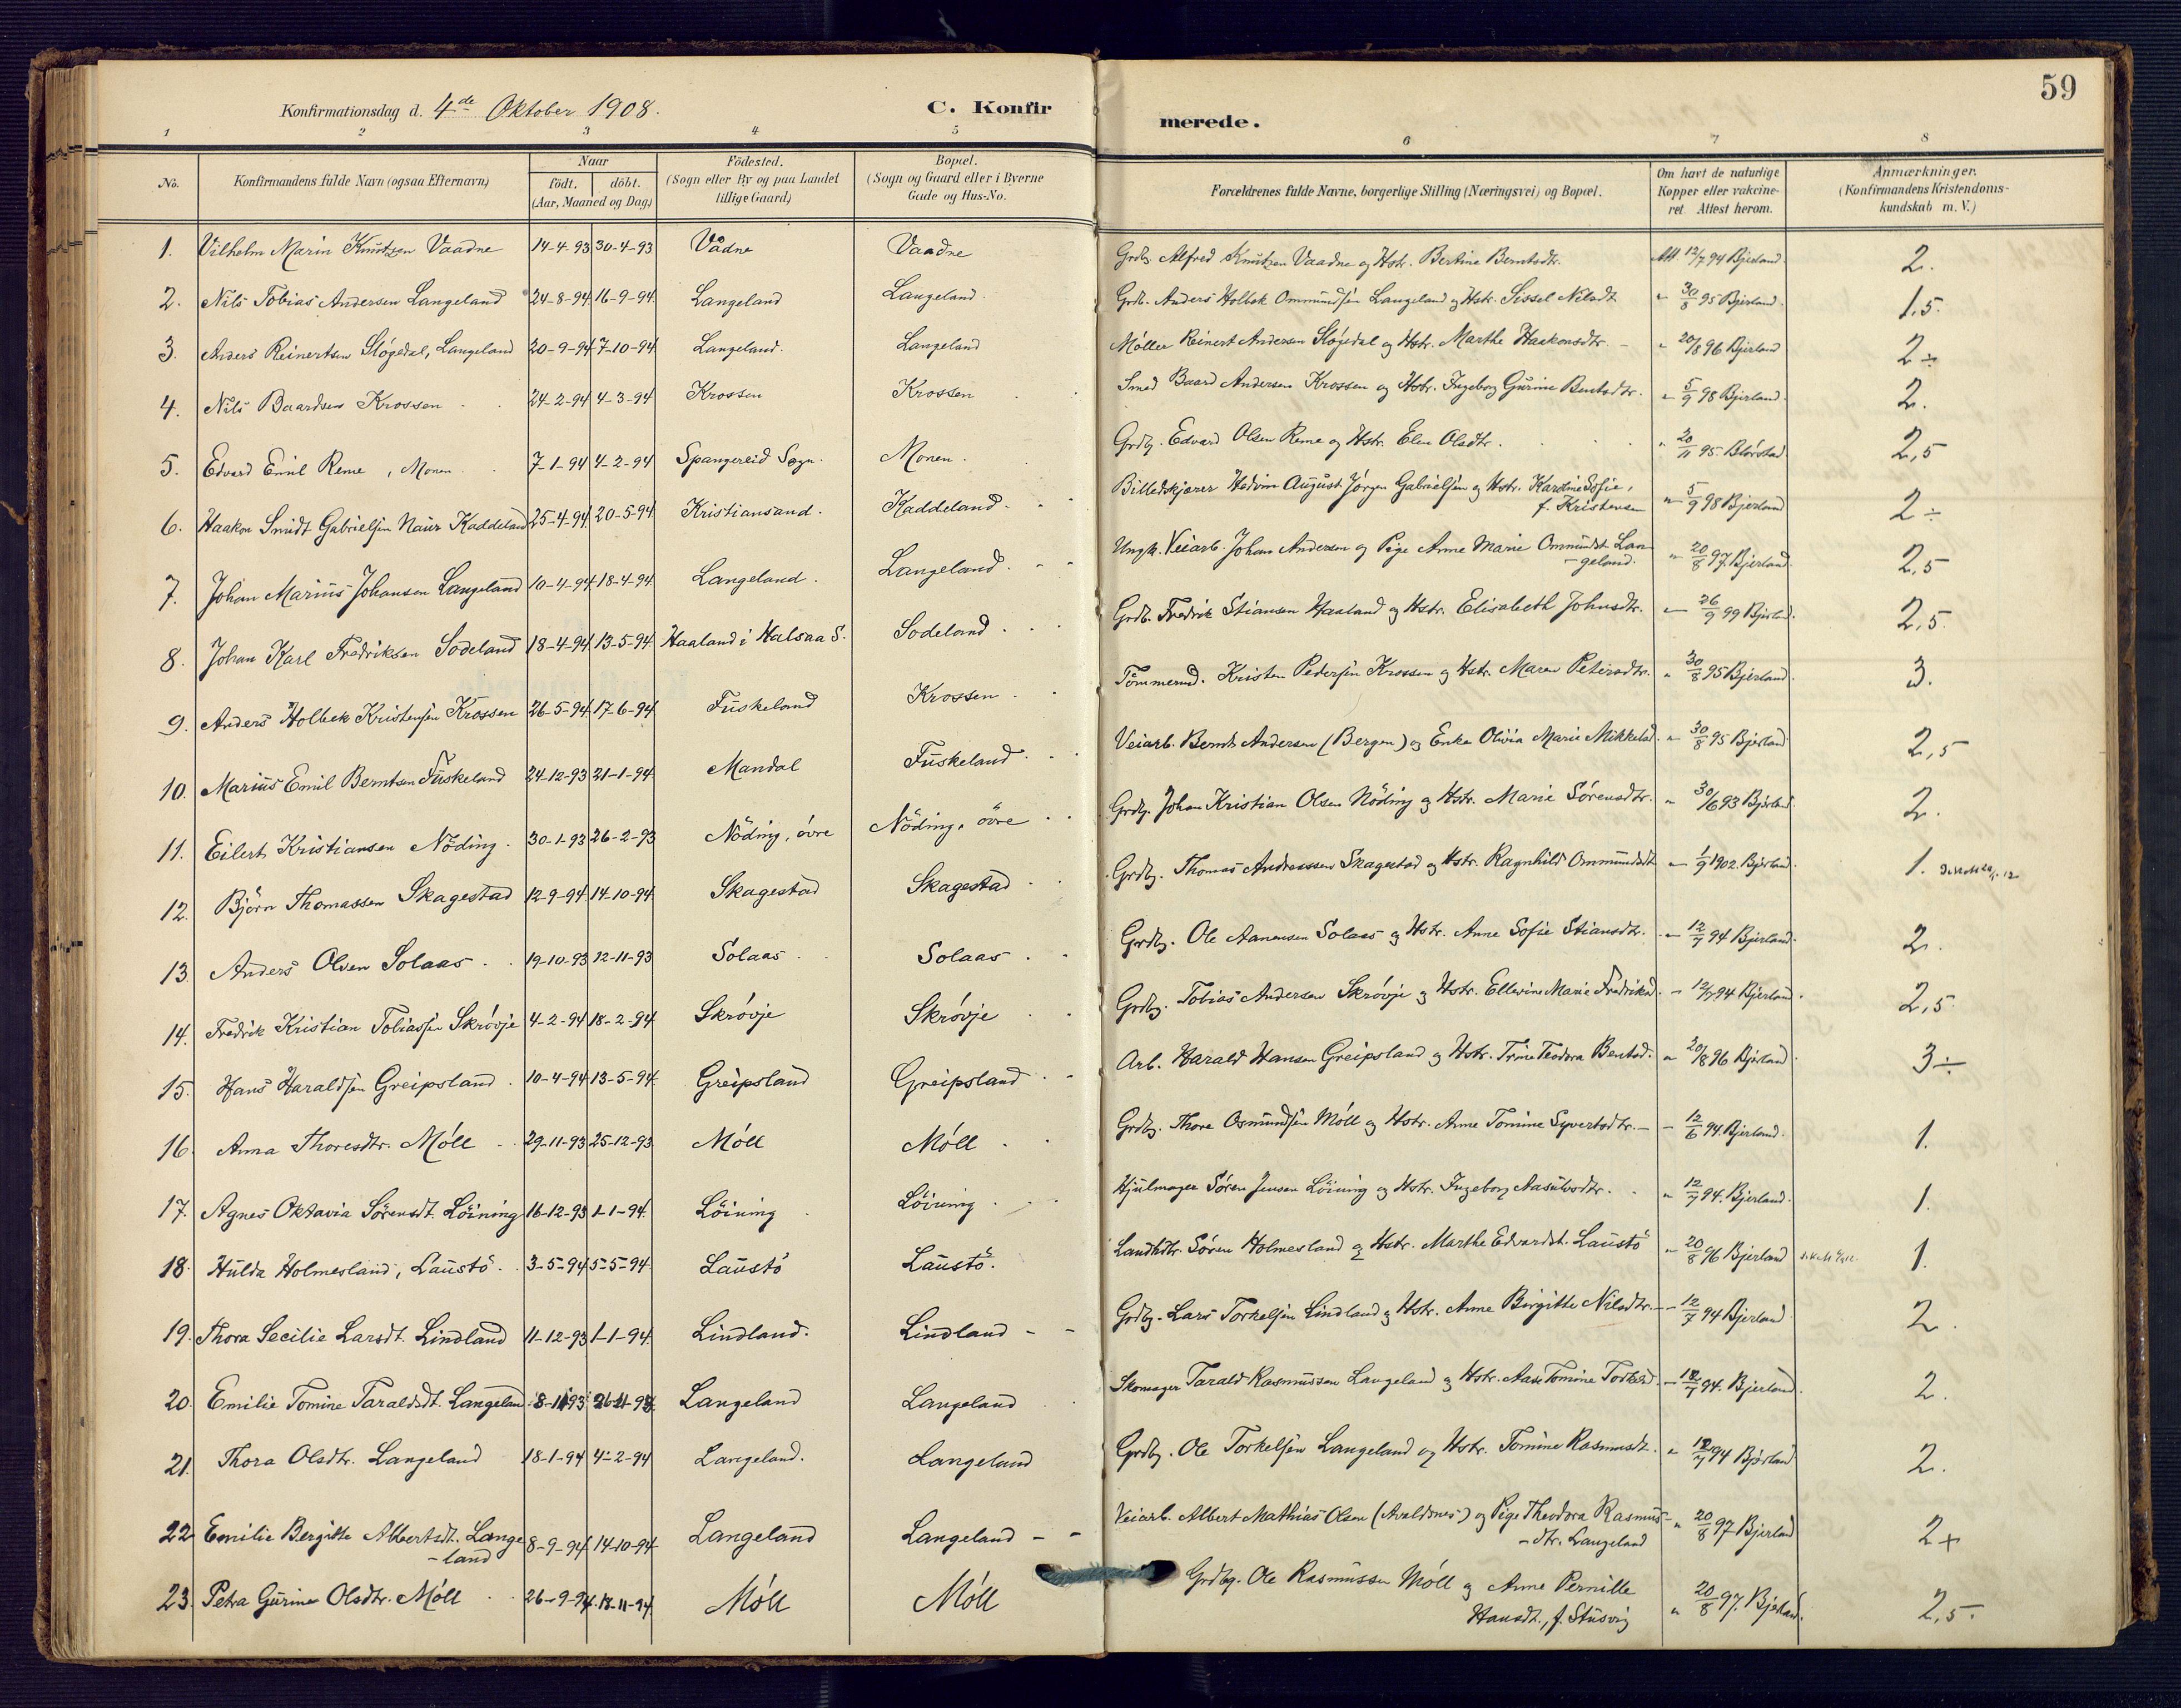 59
Konfirmationsdag d. 4de Oktober 1908.
C. Konfirmerede.
1 2 3 4 5 6 7 8
No. Konfirmandens fulde Navn (ogsaa Efternavn) Naar födt. döbt. (Aar, Maaned og Dag) Födested. (Sogn eller By og paa Landet tillige Gaard) Bopæl. (Sogn og Gaard eller i Byerne Gade og Hus-No. Forældrenes fulde Navne, borgerlige Stilling (Næringsvei) og Bopæl. Om havt de naturlige Kopper eller vakcineret Attest herom. Anmærkninger. (Konfirmandens Kristendomskundskab m. V.)
1. Vilhelm Marin Knutzen Vaadne 14-4-93 30-4-93 Vådne Vaadne Grdbr. Alfred Knutzen Vaadne og Hstr. Bertine Berntsdtr. Att 12/7 94 Bjerland. 2.
2. Nils Tobias Andersen Langeland 24-8-94 16-9-94 Langeland Langeland. Grdb. Anders Holbek Ommundsen Langeland og Hstr. Sissel Nilsdt " 30/8 95 Bjerland. 1,5.
3. Anders Reinertsen Slögedal, Langeland 20-9-94 7-10-94 Langeland. Langeland Møller Reinert Andersen Slögedal og Hstr. Marthe Haakonsdtr. " 20/8 96 Bjerland 2 ÷
4. Nils Baardsen Krossen 24-2-94 4-3-94 Krossen Krossen Smed Baard Andersen Krossen og Hstr. Ingeborg Gurine Bentsdtr. " 5/9 98 Bjerland. 2.
5. Edvard Emil Reme, Monen 7-1-94 4-2-94 Spangereid Sogn. Monen. Grdbg. Edvard Olsen Reme og Hstr. Elen Olsdtr. " 20/11 95. 2,5
6. Haakon Smidt Gabrielsen Naur Kaddeland 25-4-94. 20-5-94 Kristiansand. Kaddeland. Billedskjærer Hedvin August Jørgen Gabrielsen og Hstr. Karoline Sofie, f. Kristensen " 5/9 98 Bjerland 2 ÷
7. Johan Marius Johansen Langeland 10-4-94 18-4-94. Langeland. Langeland. Ungk. Veiarb. Johan Andersen og Pige Anne Marie Ommundst. Lan-geland. " 20/8 97. Bjerland. 2,5
8. Johan Karl Fredriksen Sodeland 18-4-94 13-5-94 Haaland i Halsaa S. Sodeland. Grdb. Fredrik Stiansen Haaland og Hstr. Elisabeth Johnsdtr. " 26/9 99 Bjerland. 2,5
9. Anders Holbek Kristensen Krossen 26-5-94 17-6-94 Fuskeland Krossen. Tömmermd. Kristen Pedersen Krossen og Hstr. Maren Petersdtr. " 30/8 95 Bjerland. 3.
10. Marius Emil Berntsen Fuskeland 24-12-93 21-1-94 Mandal Fuskeland. Veiarb. Bernt Andersen (Bergen) og Enke Olivia Marie Mikkelsd. " 30/8 95 Bjerland 2,5
11. Eilert Kristiansen Nöding. 30-1-93 26-2-93 Nöding, övre Nöding, övre Grdbg. Johan Kristian Olsen Nöding og Hstr. Marie Sörensdtr. " 30/6 93 Bjerland. 2.
12. Björn Thomassen Skagestad 12-9-94 14-10-94 Skagestad Skagestad Grdbg. Thomas Andreassen Skagestad og Hstr. Ragnhild Ommundsdt. " 1/9 1902. Bjerland. 1.
13. Anders Olsen Solaas 19-10-93 12-11-93 Solaas Solaas. Grdbg. Ole Aanensen Solaas og Hstr. Anne Sofie Stiansdtr. " 12/7 94 Bjerland. 2.
14. Fredrik Kristian Tobiassen Skróvje 4-2-94 18-2-94 Skróvje Skróvje Grdbg. Tobias Andersen Skróvje og Hstr. Ellevine Marie Fredriksd. - 12/7 94 Bjerland. 2,5
15. Hans Haraldsen Greipsland. 10-4-94 13-5-94 Greipsland Greipsland Arb. Harald Hansen Greipsland og Hstr. Trine Teodora Bentsd. " 20/8 96 Bjerland 3 ÷
16. Anna Thoresdtr. Móll 29-11-93 25-12-93 Móll Móll Grdbg. Thore Osmundsen Móll og Hstr. Anne Tomine Syvertsdtr. - 12/6 94. Bjerland. 1.
17. Agnes Oktavia Sörensdt. Löining 16-12-93 1-1-94. Löining Löining Hjulmager Sören Jensen Löining og Hstr. Ingeborg Aasulvsdtr. " 12/7 94. Bjerland. 1.
18. Hulda Holmesland, Laustö. 3-5-94 5-5-94 Laustö Laustö. Landhdtr. Sören Holmesland og Hstr. Marthe Edvardst. Laustö " 20/8 96 Bjerland 1.
19. Thora Secilie Larsdt. Lindland 11-12-93 1-1-94. Lindland. Lindland Grdbg. Lars Torkelsen Lindland og Hstr. Anne Birgitte Nilsdtr. - 12/7 94 Bjerland 2.
20. Emilie Tomine Taraldsdt. Langeland 8-11-93 26-11-93 Langeland Langeland Skomager Tarald Rasmussen Langeland og Hstr. Aase Tomine Torkelsd. - 12/7 94. Bjerland. 2.
21. Thora Olsdtr. Langeland 18-1-94 4-2-94 Langeland. Langeland Grdbg. Ole Torkelsen Langeland og Hstr. Tomine Rasmusdt. " 12/7 94 Bjerland 2.
22 Emilie Bergitte Albertsdt. Lange-land 8-9-94 14-10-94 Langeland Langeland Veiarb. Albert Mathias Olsen (Avaldsnes) og Pige Theodora Rasmus-dtr. Langeland " 20/8 97 Bjerland 2 +
23. Petra Gurine Olsdtr. Móll 26-9-94. 18-11-94. Móll Móll Grdbg. Ole Rasmussen Móll og Anne Pernille Hansdt., f. Stusvig " 20/8 97. Bjerland. 2,5.